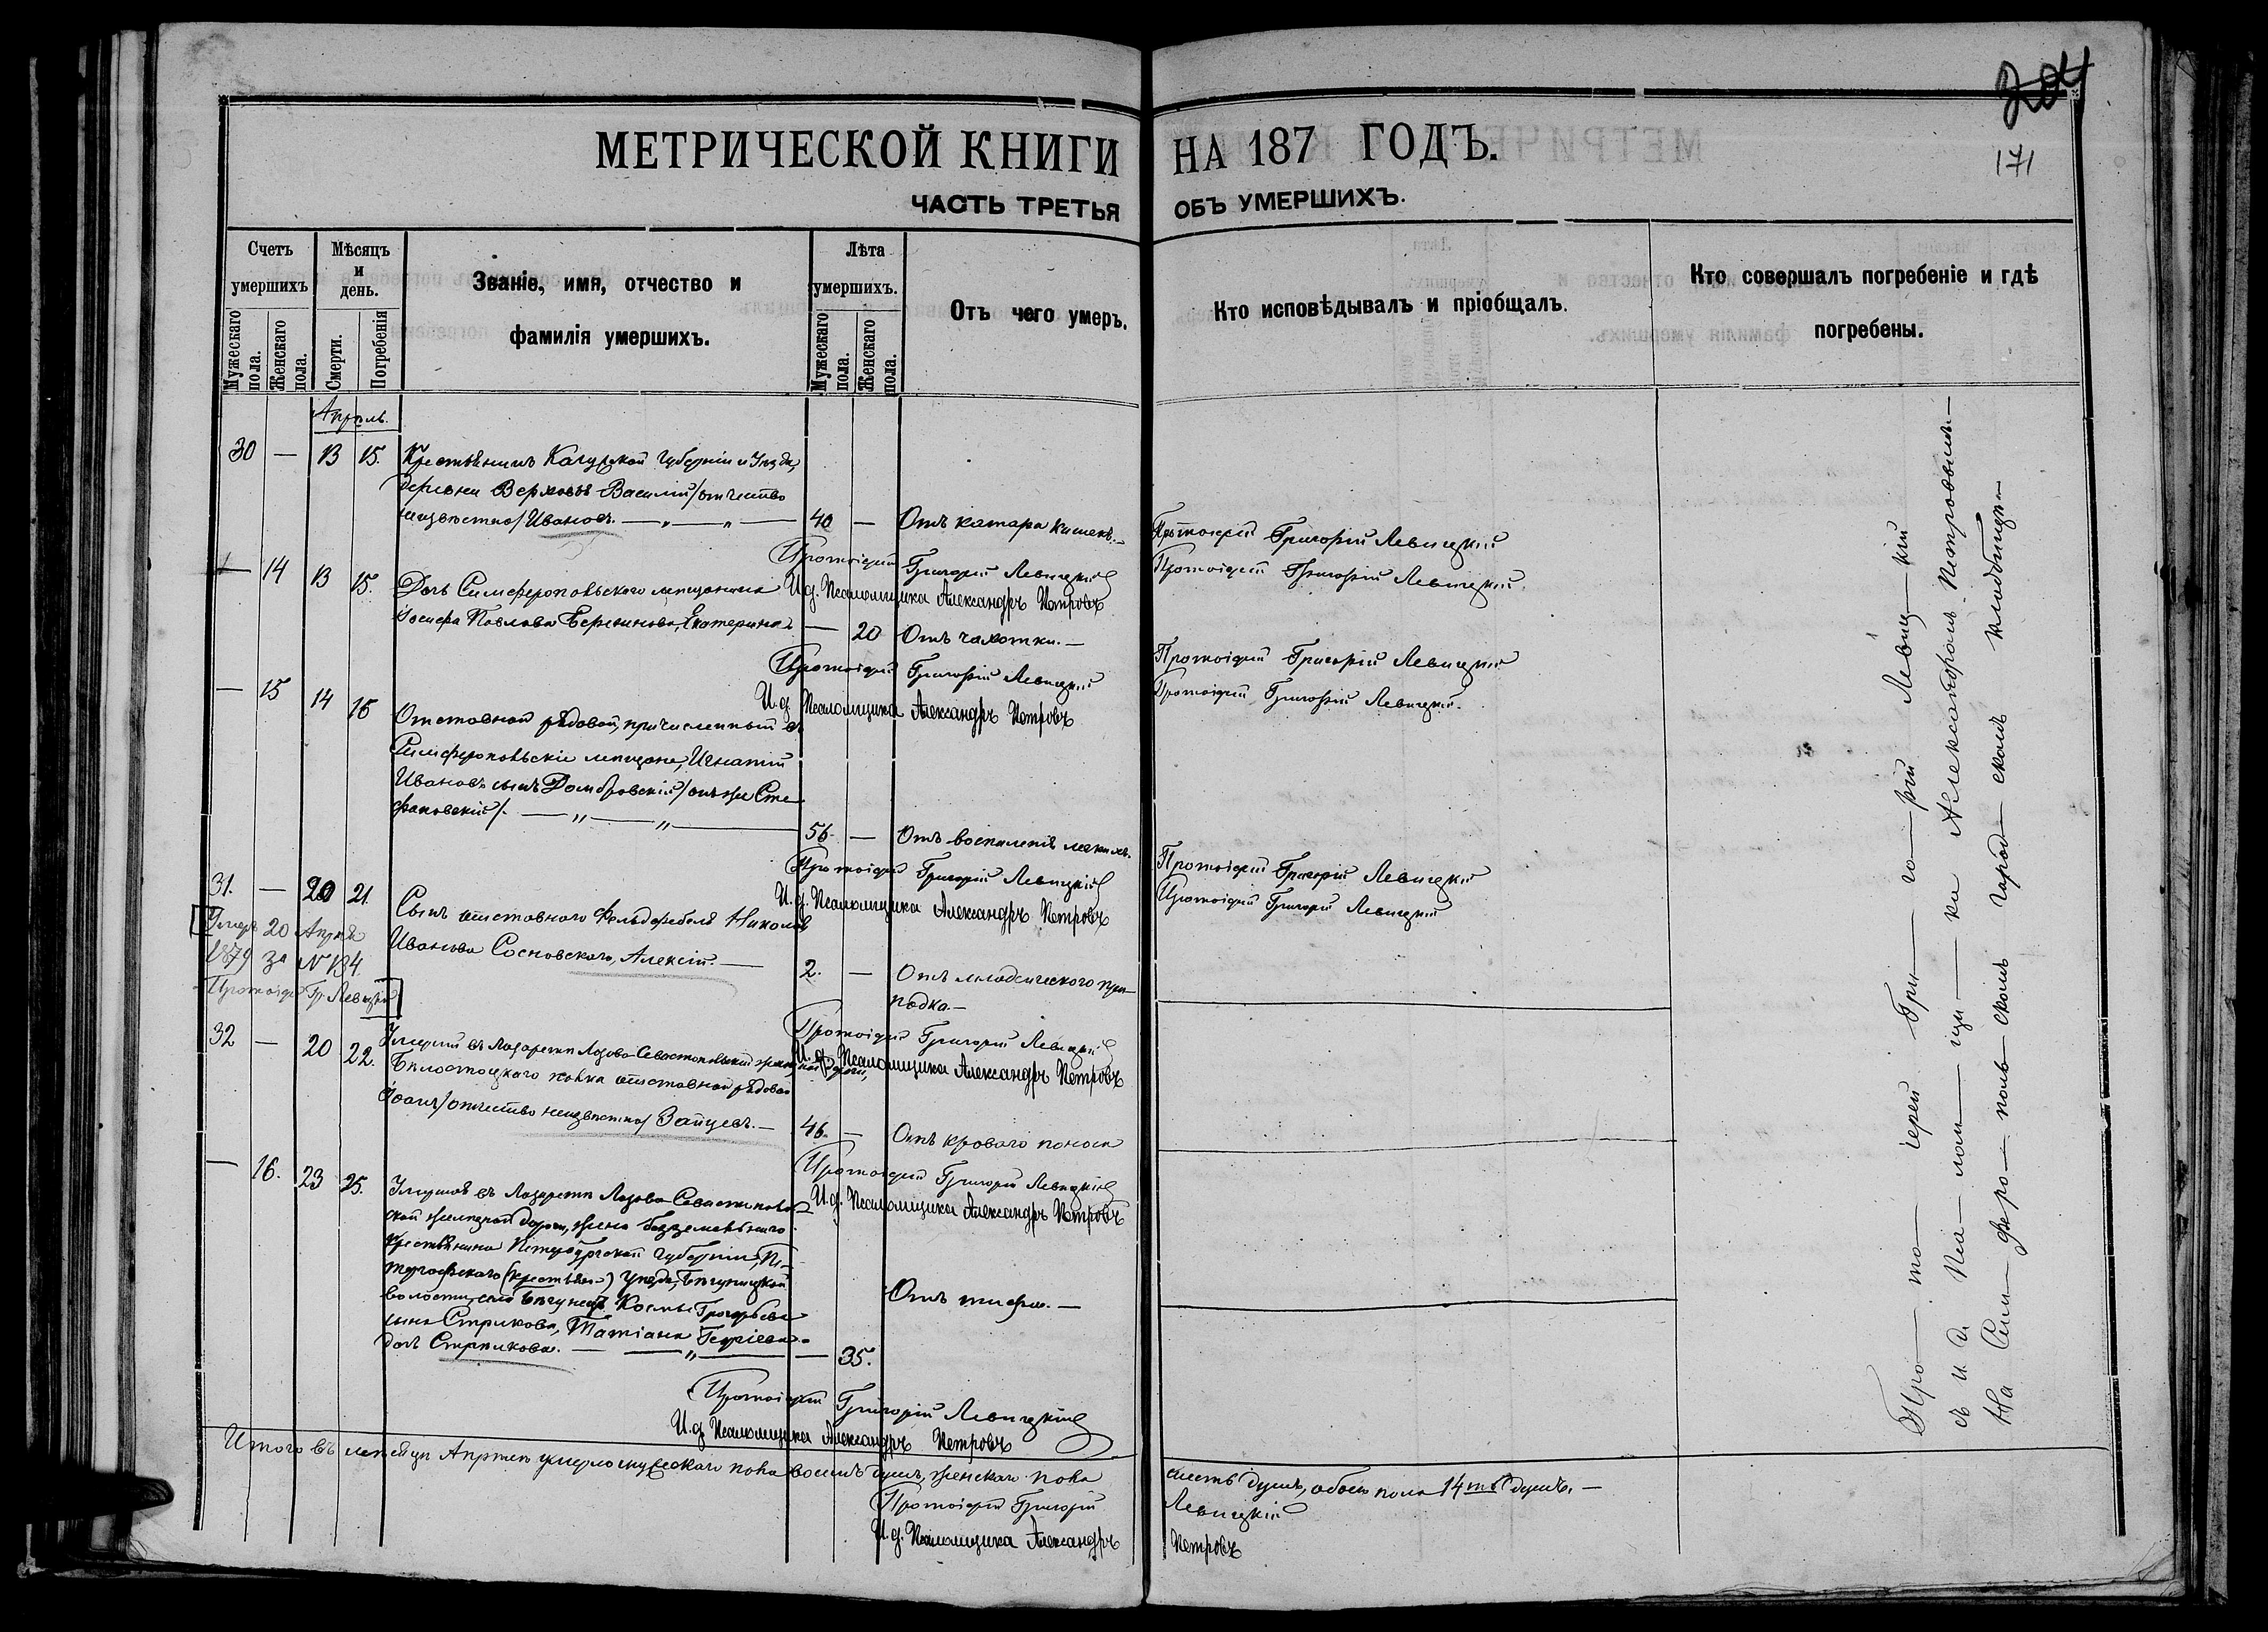 204
171
МЕТРИЧЕСКОЙ КНИГИ НА 187 ГОДЪ.
ЧАСТЬ ТРЕТЬЯ ОБЪ УМЕРШИХЪ.
Счетъ умершихъ
Мужескаго пола.
Женскаго пола.
Мѣсяцъ и день.
Смерти.
Погребенія
Званіе, имя, отчество и
фамилія умершихъ.
Лѣта умершихъ.
Мужескаго пола.
Женскаго пола.
Отъ чего умеръ.
Кто исповѣдывалъ и пріобщалъ.
Кто совершалъ погребеніе и гдѣ
погребены.
Апрѣль.
30 — 13 15. Крестьянинъ Калужской губерніи и уѣзда,
деревни Верховья Василій /отчество
неизвѣстно/ Ивановъ. — „ — „ — 40 — Отъ катара кишекъ. —
Протоіерей Григорій Левицкій
Протоіерей Григорій Левицкій
И.д. Псаломщика Александръ Петровъ
Протоіерей Григорій Левицкій
— 14 13 15. Дочь Симферопольскаго мѣщанина
Іосифа Павлова Екатерина — 20 Отъ чахотки. —
Протоіерей Григорій Левицкій
Протоіерей Григорій Левицкій
И.д. Псаломщика Александръ Петровъ
Протоіерей Григорій Левицкій.
— 15 14 16 Отставной рядовой, причисленный въ
Симферопольскіе мѣщане, Игнатій
Ивановъ сынъ Домбровскій /онъ же Сте-
фановскій/. — „ — „ — 56. — Отъ воспаленія легкихъ.
Протоіерей Григорій Левицкій
Протоіерей Григорій Левицкій
И.д. Псаломщика Александръ Петровъ
Протоіерей Григорій Левицкій
31. — 20 21. Сынъ отставного Фельдфебеля Николая
Иванова Сосновскаго, Алексій. — 2. — Отъ младенческаго при-
падка. —
Умеръ 20 Апрѣля
1879 за № 134.
Протоіерей Гр. Левицкій
Протоіерей Григорій Левицкій
И.д. Псаломщика Александръ Петровъ
32 — 20 22. Умершій въ Лазаретѣ Лозово-Севастопольской желѣзной дороги,
Бѣлостоцкаго полка отставной рядовой
Іоаннъ /отчество неизвѣстно/ Зайцевъ. — 46. — Отъ кроваго поноса
Протоіерей Григорій Левицкій
И.д. Псаломщика Александръ Петровъ
— 16. 23 25. Умершая въ Лазаретѣ Лозово-Севастополь-
ской желѣзной дороги, жена безземельнаго
крестьянина Петербургской губерніи, Пе-
тергофскаго (крестьян-) уѣзда,
волости, села Космы Григорьева
сына Стрѣлкова, Татіана Георгіева
дочь Стрѣлкова. — „ — 35. Отъ тифа. —
Протоіерей Григорій Левицкій
И.д. Псаломщика Александръ Петровъ
Про—то—іерей Гри—го—рій Левиц—кій
съ И. д. Пса—лом—щи—ка Александромъ Петровымъ—
На Сим—феро—поль—скомъ город—скомъ кладбищѣ—
Итого въ мѣсяцѣ Апрѣлѣ умерло мужескаго пола восемь душъ, женскаго пола шесть душъ, обоего пола 14ть душъ. —
Протоіерей Григорій Левицкій
И.д. Псаломщика Александръ Петровъ